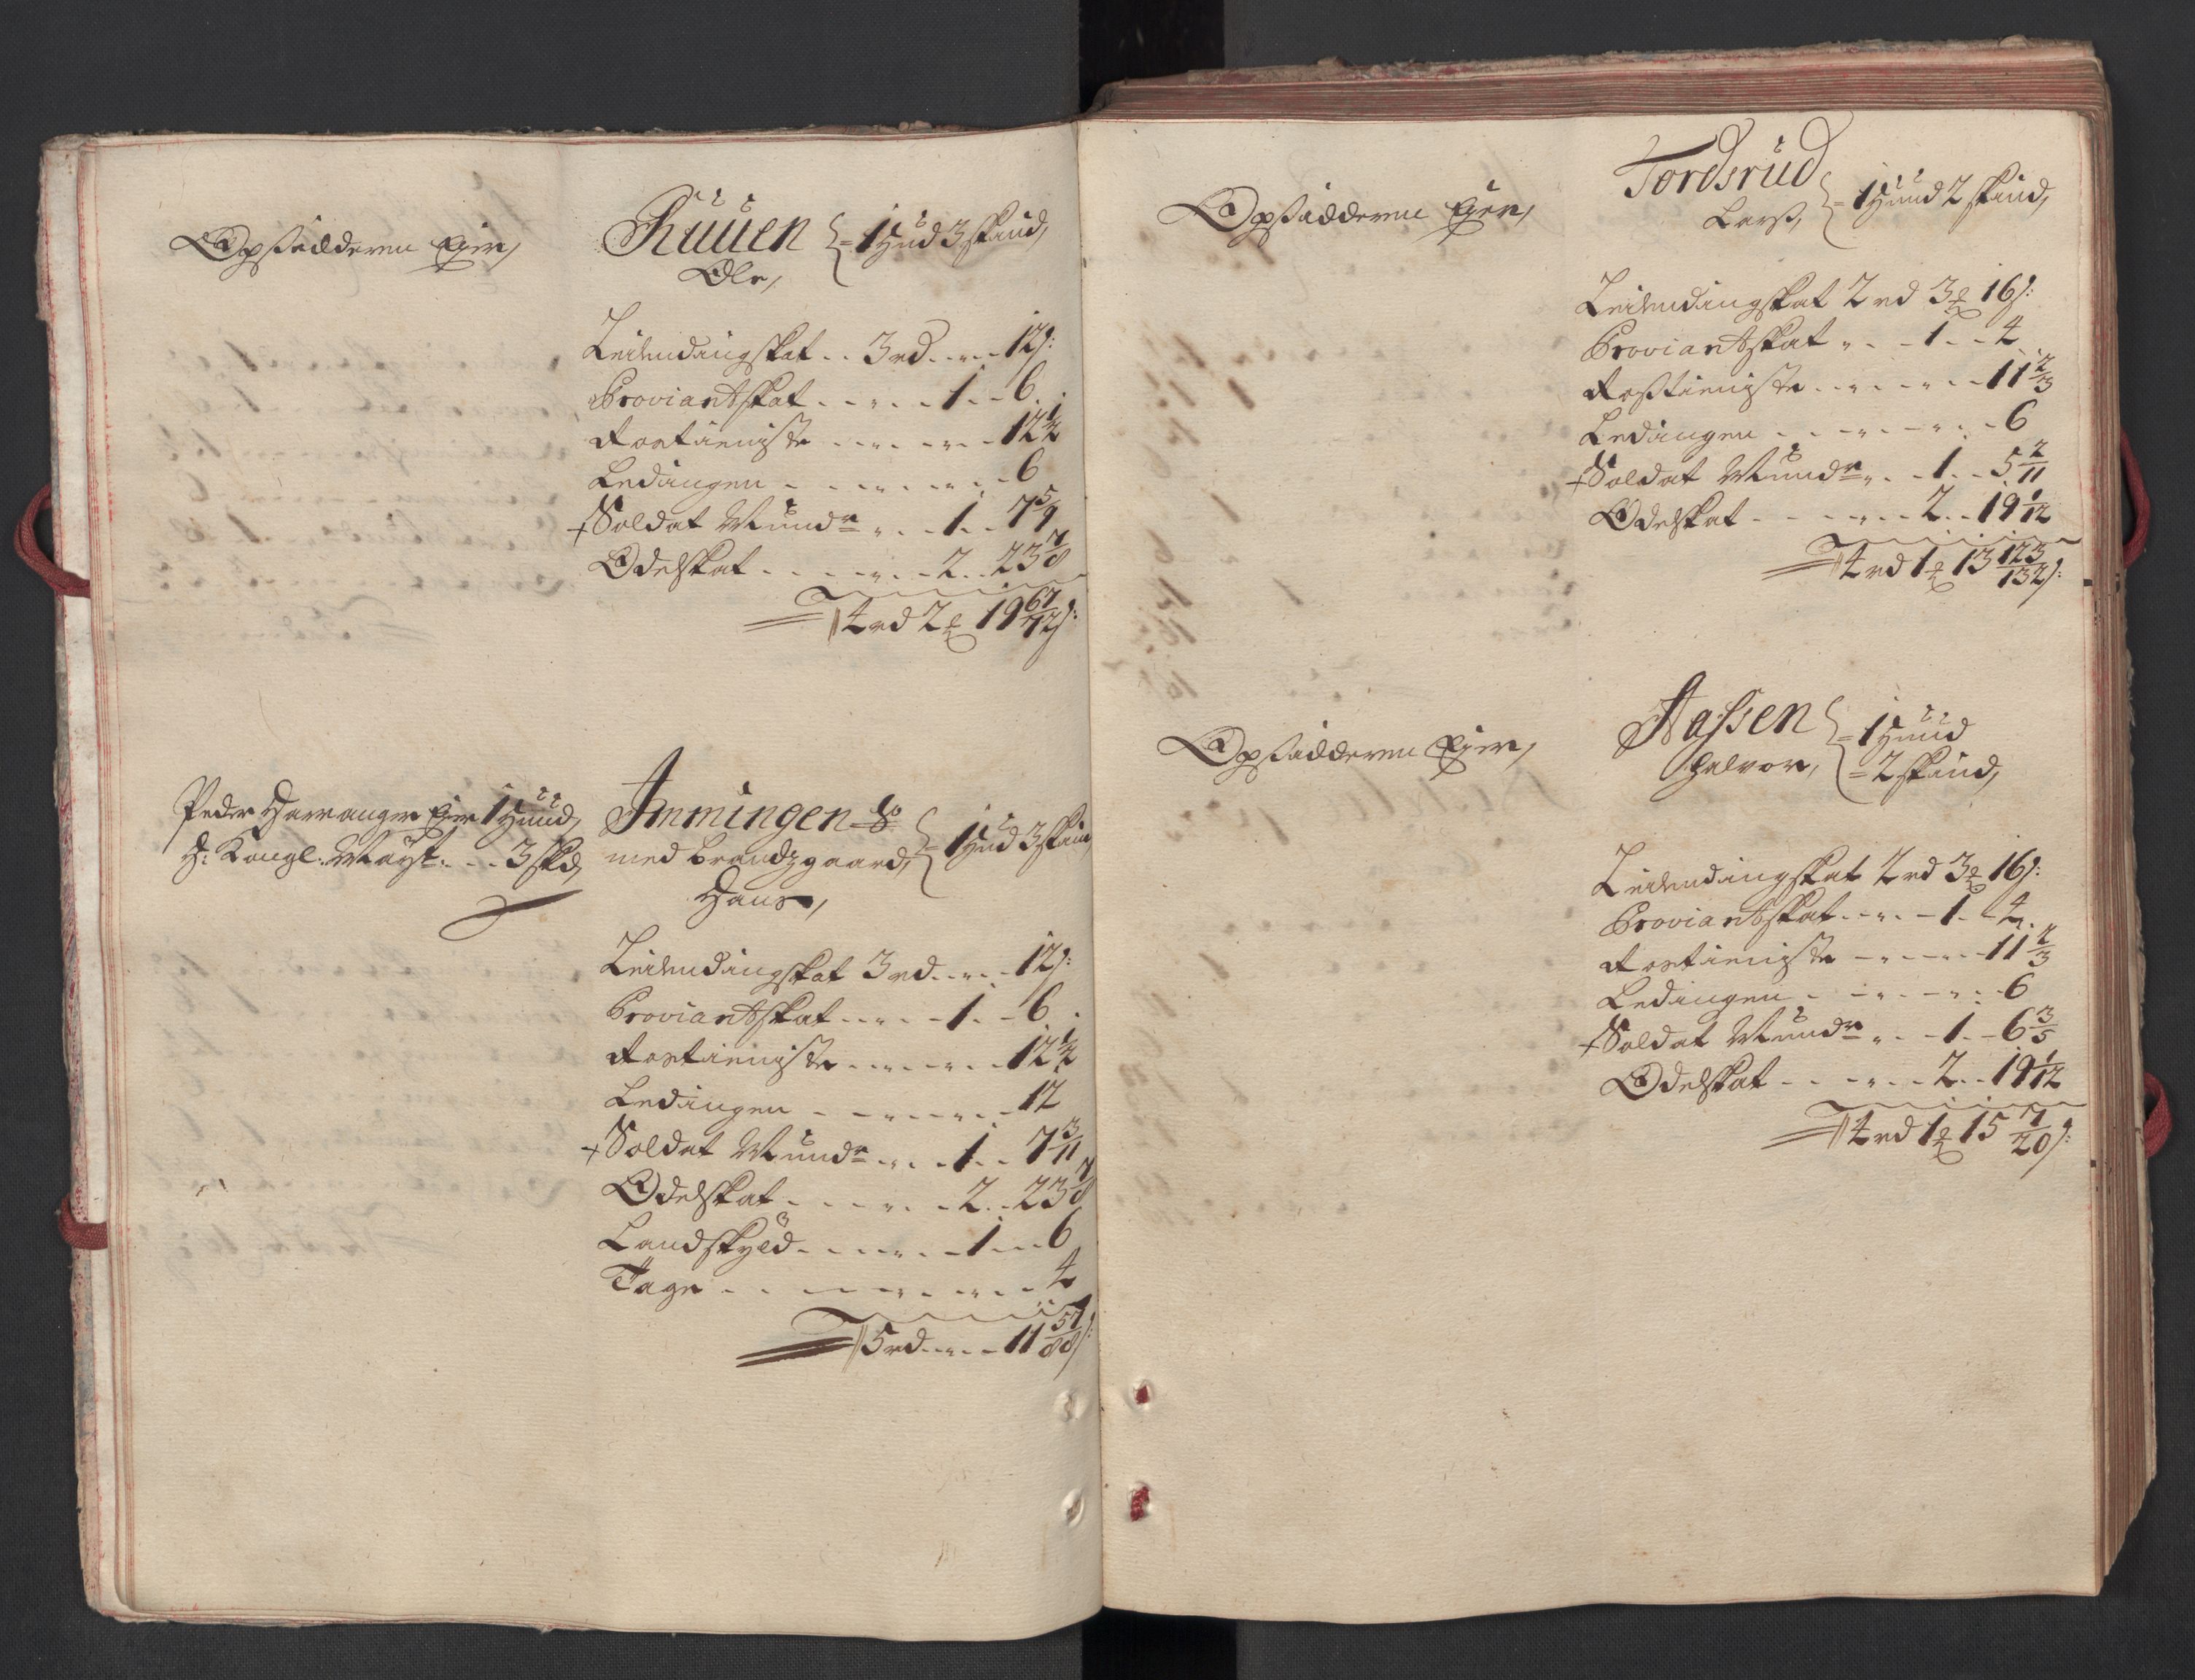 Opsidderen Ejer,
Ruuen = 1 Hud 3 skind,
Ole,
Leilendingskat .. 3 rd .. „ .. 12 s:
Proviantskat .. „ .. 1 .. 6
Rostieniste .. „ .. „ .. 12 1/2
Ledingen .. „ .. „ .. 6
+ Soldat Mundr .. „ .. 1 .. 7 5/9
Odelskat .. „ .. 2 .. 23 7/8
4 rd 2 19 67/72 s:
Peder Harranger Ejer 1 Huud,
H: Kongl: Mayt: .. 3 skd,
Immingen
med Brandzgaard, = 1 Hud 3 skind
Hans,
Leilendingskat 3 rd .. „ .. 12 s:
Proviantskat .. „ .. 1 .. 6
Rostieniste .. „ .. „ .. 12 1/2
Ledingen .. „ .. „ .. 12
+ Soldat Mundr .. „ .. 1 .. 7 3/11
Odelskat .. „ .. 2 .. 23 7/8
Landskyld .. „ .. 1 .. 6
Tage .. „ .. „ .. 4
5 rd .. „ .. 11 57/88 s:
Opsidderen Ejer,
Tordsrud = 1 Huud 2 skind,
Lars,
Leilendingskat 2 rd 3 16 s:
Proviantskat .. „ .. 1 .. 4
Rostieniste .. „ .. „ .. 11 2/3
Ledingen .. „ .. „ .. 6
+ Soldat Mundr .. „ .. 1 .. 5 2/11
Odelskat .. „ .. 2 .. 19 1/12
4 rd 1 13 123/132 s:
Opsidderen Ejer,
Aassen = 1 Huud
Halvor, = 2 skind,
Leilendingskat 2 rd 3 16 s:
Proviantskat .. „ .. 1 .. 4
Rostieniste .. „ .. „ .. 11 2/3
Ledingen .. „ .. „ .. 6
+ Soldat Mundr .. „ .. 1 .. 6 3/5
Odelskat .. „ .. 2 .. 19 1/12
4 rd 1 15 7/20 s: